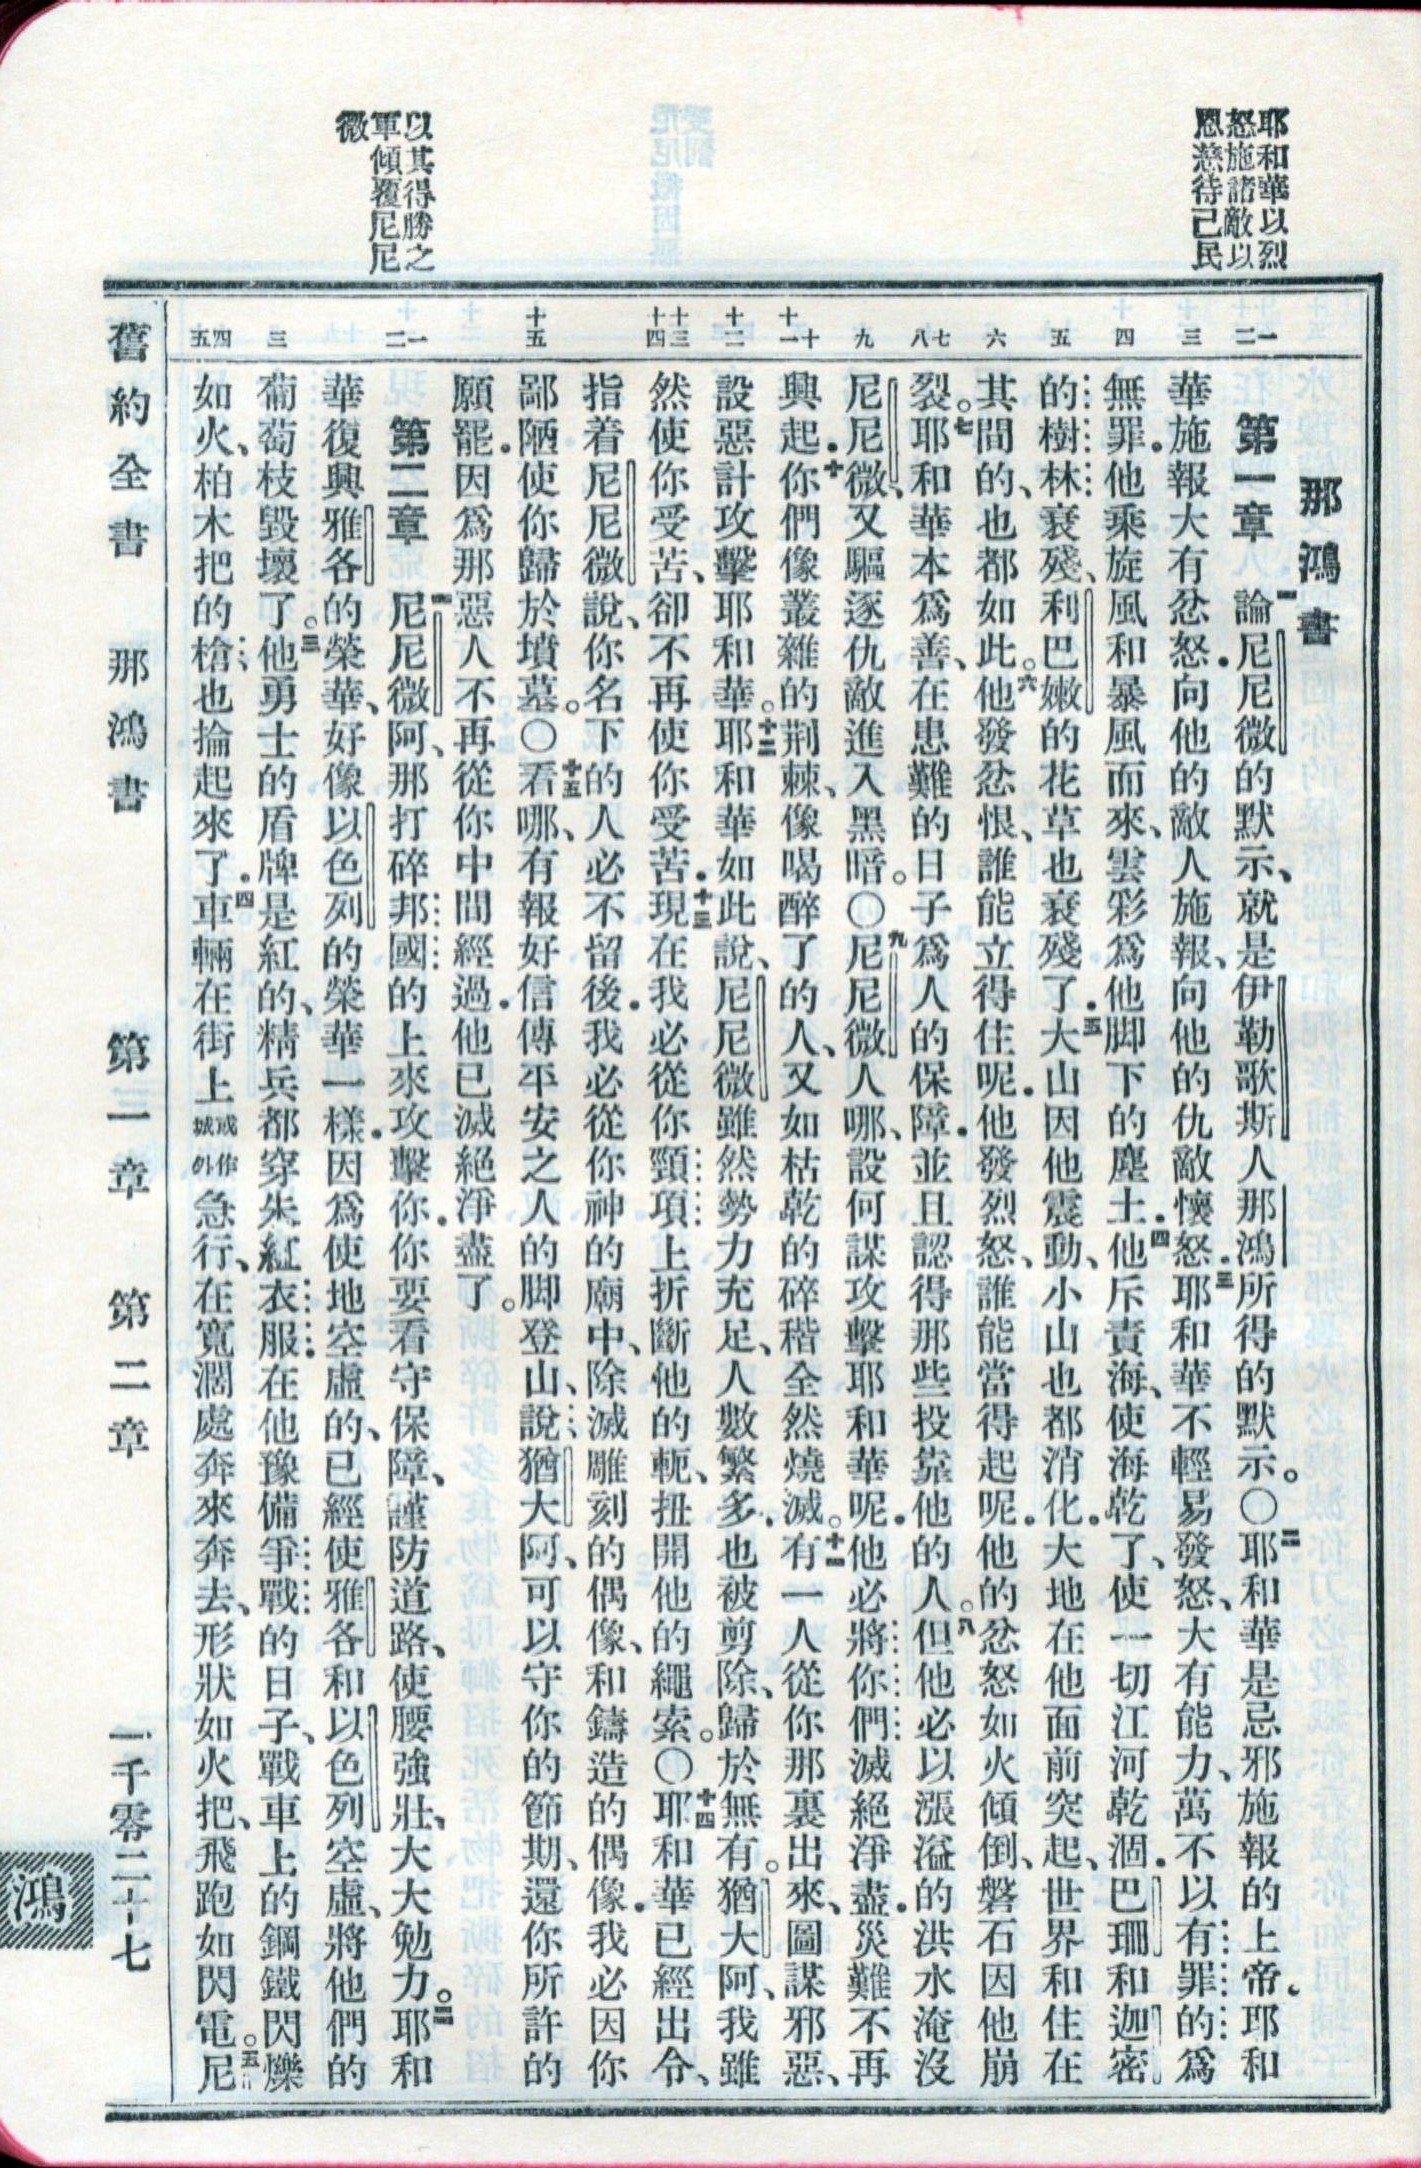 耶和華以烈
怒施諸敵以
恩慈待己民
以其得勝之
軍傾覆尼尼
微
那鴻書
一二
三
四
五
六
七八
九
十十一
十二
十三十四
十五
一二
三
四五
第一章 一論尼尼微的默示、就是伊勒歌斯人那鴻所得的默示。〇二耶和華是忌邪施報的上帝．耶和
華施報大有忿怒．向他的敵人施報、向他的仇敵懷怒．三耶和華不輕易發怒、大有能力、萬不以有罪的爲
無罪．他乘旋風和暴風而來、雲彩爲他脚下的塵土．四他斥責海、使海乾了、使一切江河乾涸．巴珊和迦密
的樹林衰殘、利巴嫩的花草也衰殘了．五大山因他震動、小山也都消化．大地在他面前突起、世界和住在
其間的、也都如此。六他發忿恨、誰能立得住呢．他發烈怒、誰能當得起呢．他的忿怒如火傾倒、磐石因他崩
裂。七耶和華本爲善、在患難的日子爲人的保障．並且認得那些投靠他的人。八但他必以漲溢的洪水淹沒
尼尼微、又驅逐仇敵進入黑暗。〇九尼尼微人哪、設何謀攻擊耶和華呢．他必將你們滅絕淨盡．災難不再
興起．十你們像叢雜的荆棘、像喝醉了的人、又如枯乾的碎稭全然燒滅。十一有一人從你那裏出來、圖謀邪惡、
設惡計攻擊耶和華。十二耶和華如此說、尼尼微雖然勢力充足、人數繁多．也被剪除、歸於無有。猶大阿、我雖
然使你受苦、卻不再使你受苦．十三現在我必從你頸項上折斷他的軛、扭開他的繩索。〇十四耶和華已經出令、
指着尼尼微說、你名下的人必不留後．我必從你神的廟中、除滅雕刻的偶像、和鑄造的偶像．我必因你
鄙陋．使你歸於墳墓。〇十五看哪、有報好信傳平安之人的脚登山、說猶大阿、可以守你的節期、還你所許的
願罷．因爲那惡人不再從你中間經過．他已滅絕淨盡了。
第二章 一尼尼微阿、那打碎邦國的上來攻擊你．你要看守保障、謹防道路、使腰強壯、大大勉力。二耶和
華復興雅各的榮華、好像以色列的榮華一樣．因爲使地空虛的、已經使雅各和以色列空虛、將他們的
葡萄枝毀壞了。三他勇士的盾牌是紅的、精兵都穿朱紅衣服．在他豫備爭戰的日子、戰車上的鋼鐵閃爍
如火、柏木把的槍也掄起來了．四車輛在街上或作城外急行、在寬濶處奔來奔去、形狀如火把、飛跑如閃電。五尼
舊約全書　那鴻書　第一章　第二章　一千零二十七
鴻